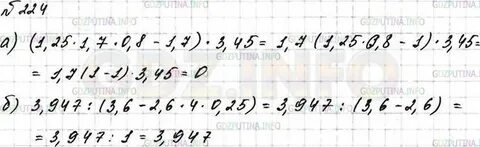 № 224
а) (1,25·1,7·0,8 - 1,7)·3,45 = 1,7(1,25·0,8 - 1)·3,45 =
= 1,7(1-1)·3,45 = 0
б) 3,947 : (3,6 - 2,6·4·0,25) = 3,947 : (3,6 - 2,6) =
= 3,947 : 1 = 3,947